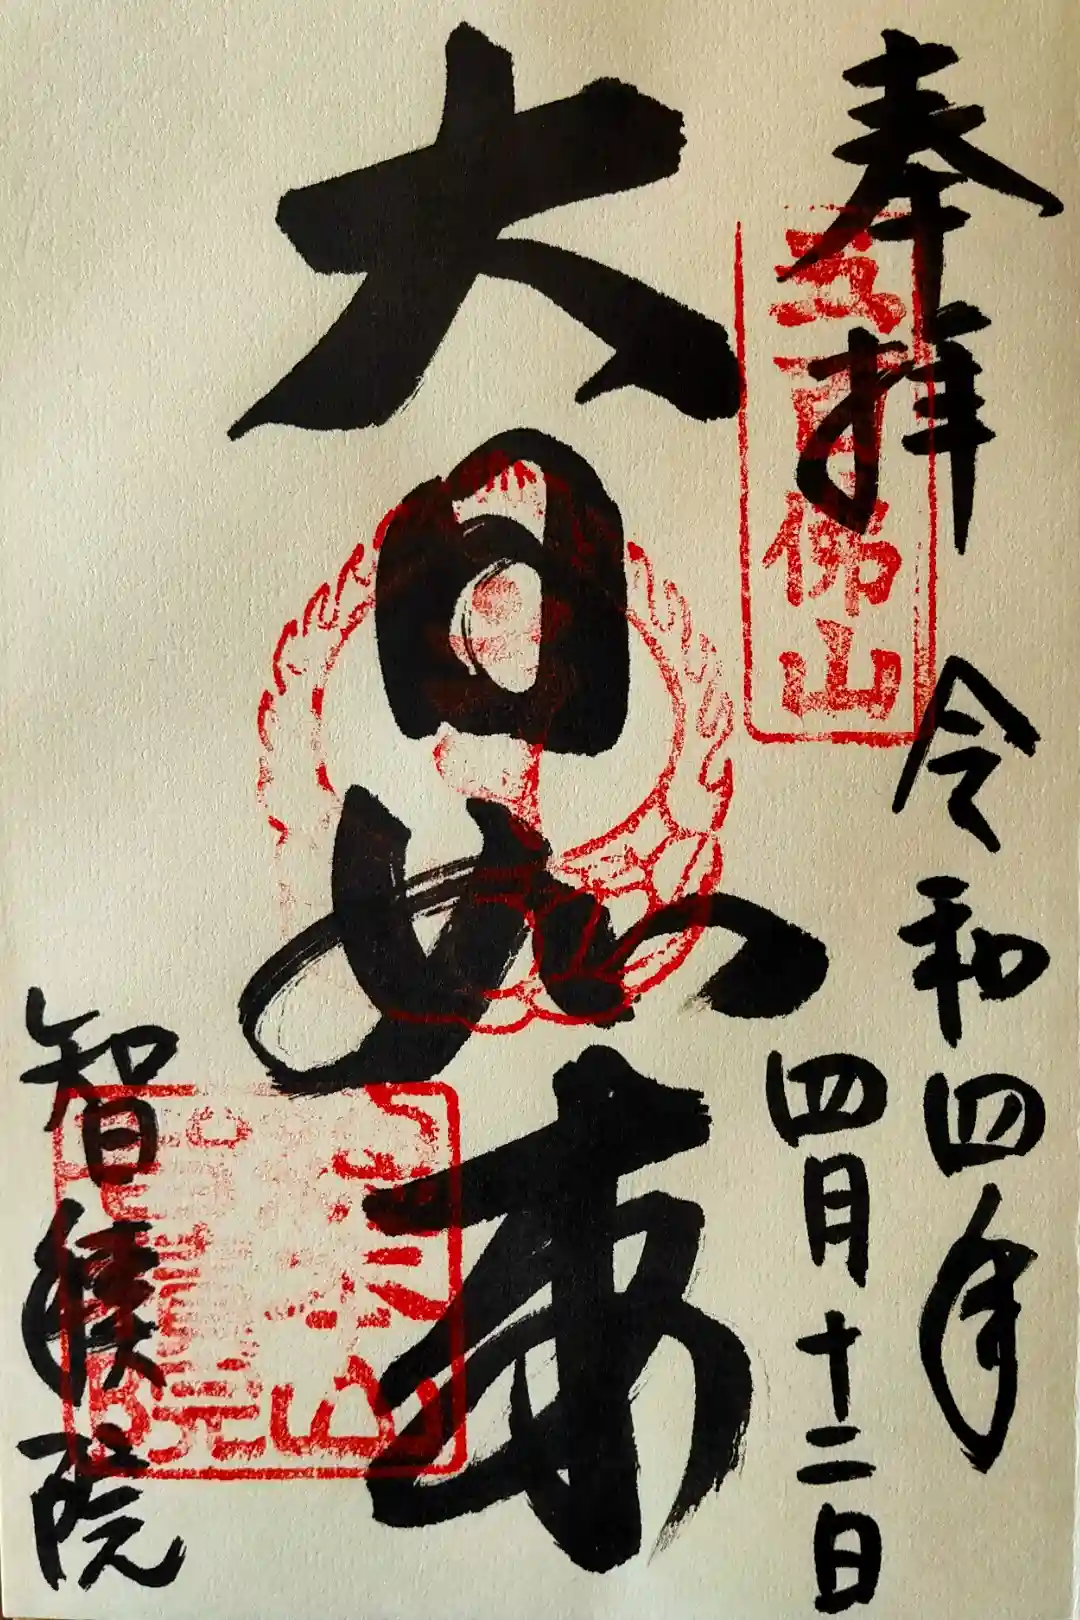 奉拝
五百佛山
令和四年
四月十二日
大日如来
智積院